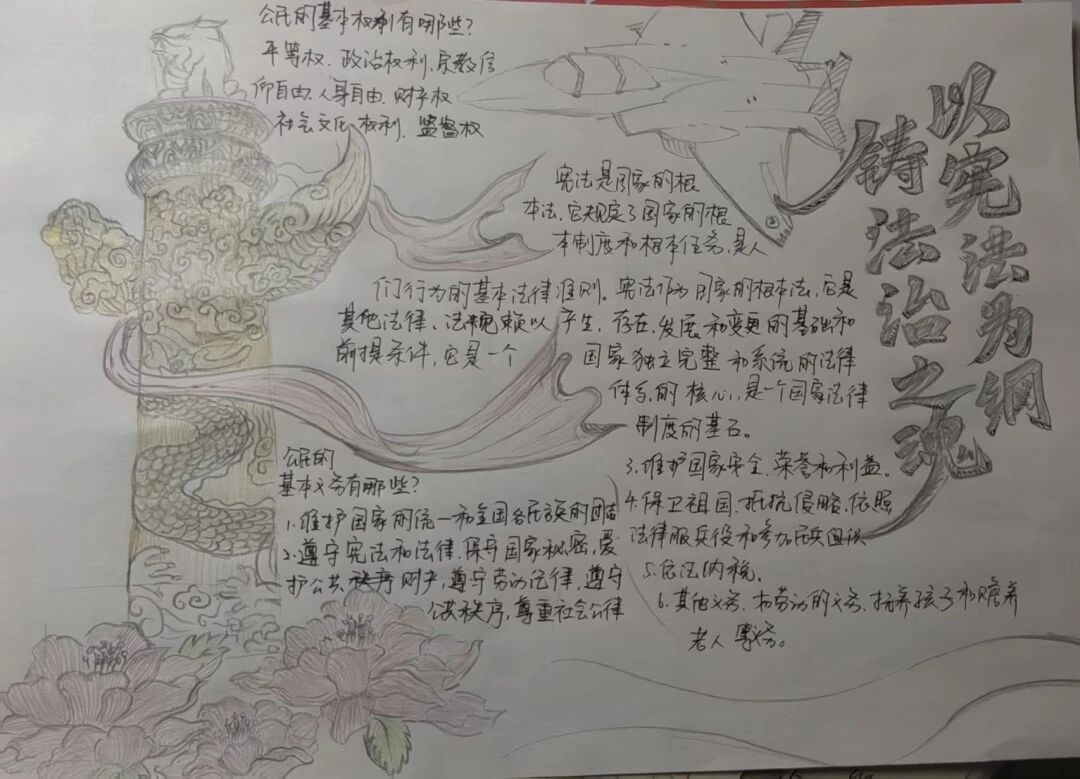 以宪法为纲
铸法治之魂
公民的基本权利有哪些?
平等权、政治权利、宗教信
仰自由、人身自由、财产权
社会文化权利、监督权
宪法是国家的根
本法,它规定了国家的根
本制度和根本任务,是人
们行为的基本法律准则。宪法作为国家的根本法,它是
其他法律、法规赖以产生、存在、发展和变更的基础和
前提条件,它是一个 国家独立完整和系统的法律
体系的核心,是一个国家法律
制度的基石。
公民的
基本义务有哪些?
1.维护国家的统一和全国各民族的团结
2.遵守宪法和法律、保守国家秘密,爱
护公共财产,遵守劳动法律,遵守
公共秩序,尊重社会公律
3.维护国家安全、荣誉和利益。
4.保卫祖国、抵抗侵略、依照
法律服兵役和参加民兵组织
5.依法纳税。
6.其他义务,有劳动的义务,抚养孩子和赡养
老人